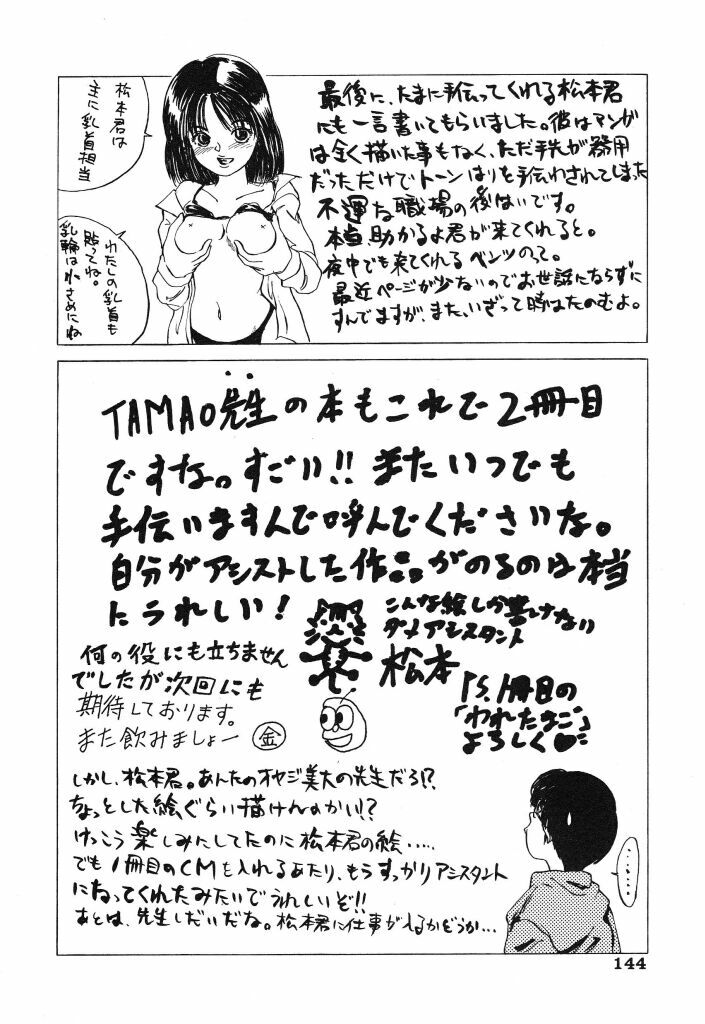 最後に、たまに手伝ってくれる松本君
にも一言書いてもらいました。彼はマンガ
は全く描いた事もなく、ただ手先が器用
だっただけでトーンはりを手伝わされてしまった
不運な職場の後はいです。
本当助かるよ君が来てくれると。
夜中でも来てくれるベンツのって。
最近ページが少ないのでお世話にならずに
すんでますが、また、いざって時はたのむよ。
松本君は
主に乳首担当
わたしの乳首も
貼ってね。
乳輪は小さめにね
TAMAO先生の本もこれで2冊目
ですな。すごい!!またいつでも
手伝いますんで呼んでくださいな。
自分がアシストした作品がのるのは本当
にうれしい!
こんな絵しか書けない
ダメアシスタント
松本
P.S.1冊目の
「われたまご」
よろしく
何の役にも立ちません
でしたが次回にも
期待しております。
また飲みましょー 金
しかし、松本君。あんたのオヤジ美大の先生だろ!?
ちょっとした絵ぐらい描けんのかい!?
けっこう楽しみにしてたのに松本君の絵.....
でも1冊目のCMを入れるあたり、もうすっかりアシスタント
になってくれたみたいでうれしいぞ!!
あとは、先生しだいだな。松本君に仕事が入るかどうか...
......
144